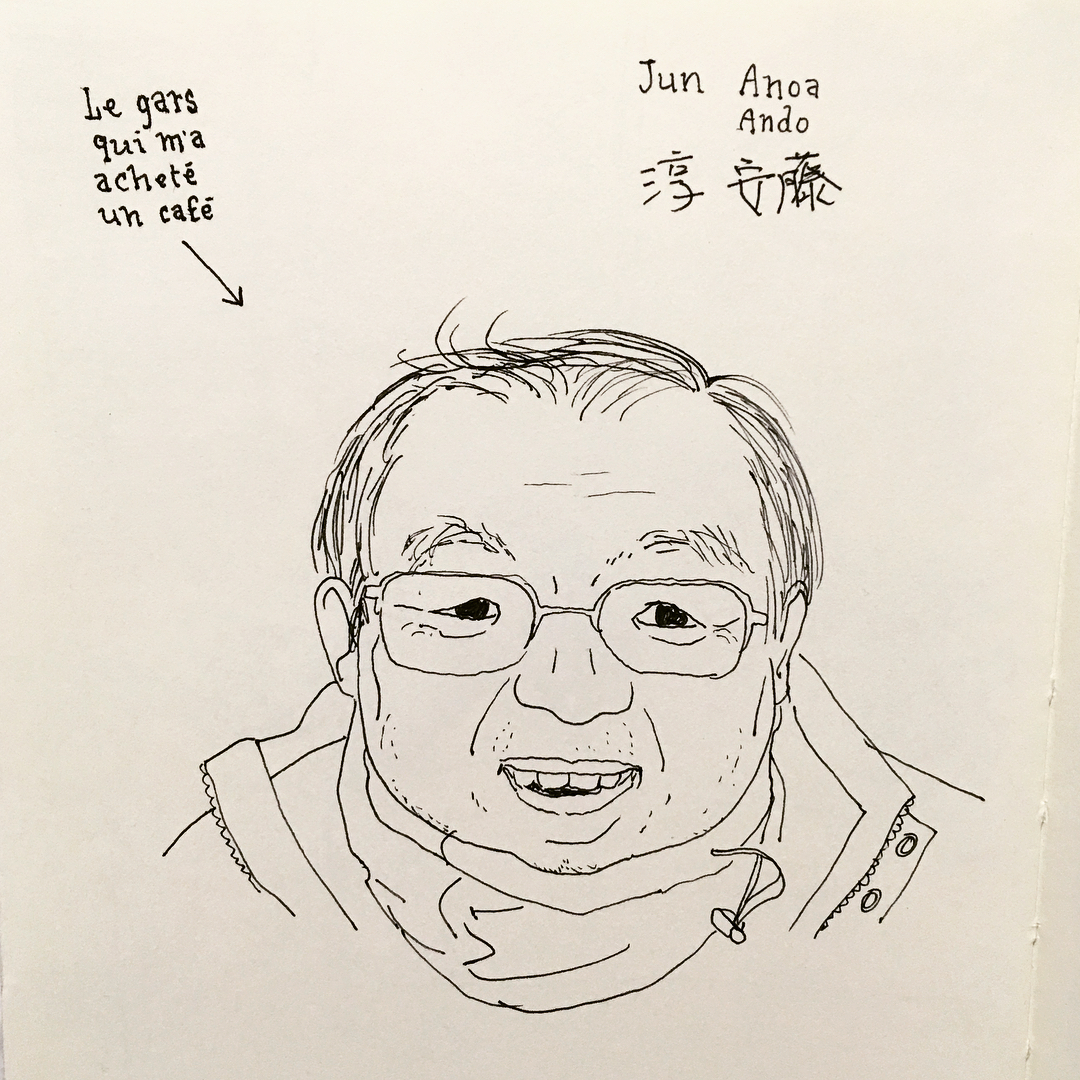 Le gars
qui m'a
acheté
un café
Jun Anoa
Ando
淳 安藤